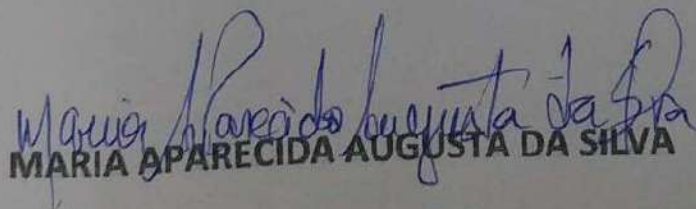 Maria Aparecida Augusta da Silva
MARIA APARECIDA AUGUSTA DA SILVA